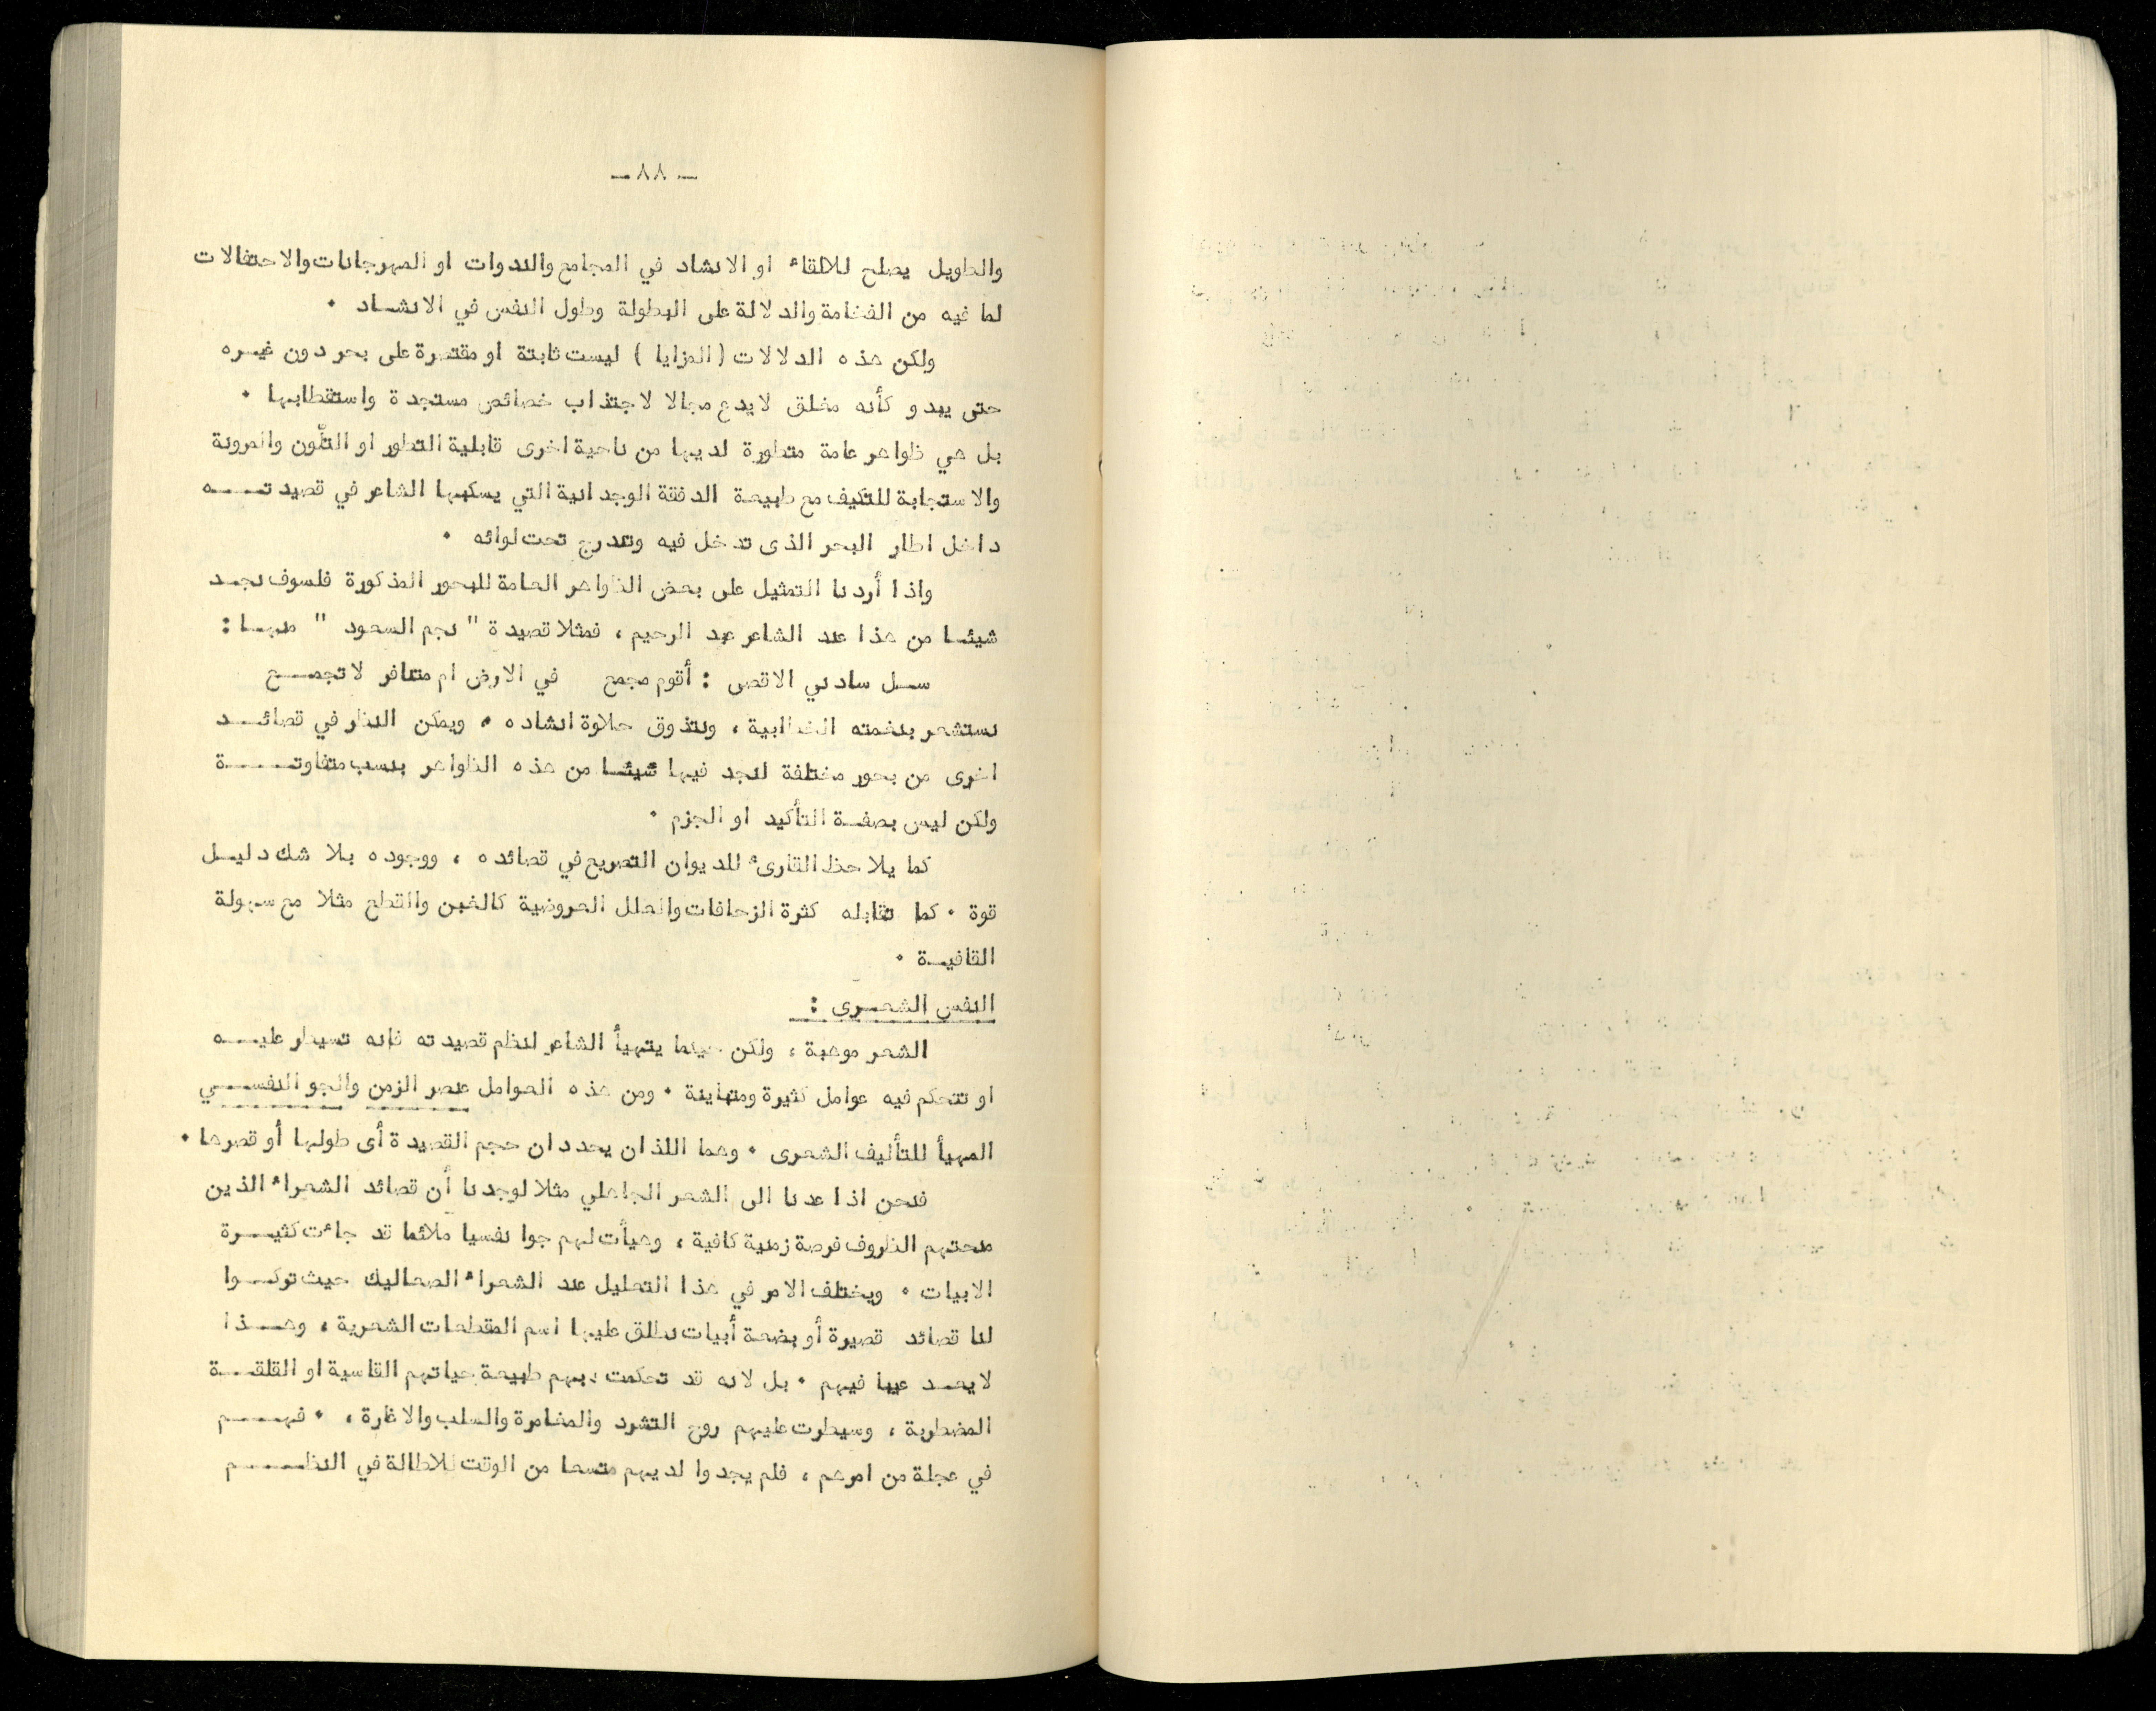 ــ ٨٨ ــ
والطويل يصلح للالقاء او الانشاد في المجامع والندوات او المهرجانات والاحتفالات
لما فيه من الفخامة والدلالة على البطولة وطول النفس في الانشاد ٠
ولكن هذه الدلالات ( المزايا ) ليست ثابتة او مقتصرة على بحر دون غيره
حتى يبدو كأنه مغلق لايدع مجالا لاجتذاب خصائص مستجدة واستقطابها ٠
بل هي ظواهر عامة متطورة لديها من ناحية اخرى قابلية التطور او التلّون والمرونة
والاستجابة للتكيف مع طبيعة الدفقة الوجدانية التي يسكبها الشاعر في قصيدته
داخل اطار البحر الذى تدخل فيه وتندرج تحت لوائه ٠
واذا أردنا التمثيل على بعض الظواهر العامة للبحور المذكورة فلسوف نجد
شيئا من هذا عند الشاعر عبد الرحيم ، فمثلا قصيدة " نجم السعود " منها :
سل سادني الاقصى : أقوم مجمع في الارض ام متنافر لا تجمع
نستشعر بنغمته الخطابية ، ونتذوق حلاوة انشاده ٠ ويمكن النظر في قصائد
اخرى من بحور مختلفة لنجد فيها شيئا من هذه الظواهر بنسب متفاوتة
ولكن ليس بصفة التأكيد او الجزم ٠
كما يلاحظ القارىء للديوان التصريع في قصائده ، ووجوده بلا شك دليل
قوة ٠ كما تقابله كثرة الزحافات والعلل العروضية كالخبن والقطع مثلا مع سهولة
القافية ٠
النفس الشعرى :
الشعر موهبة ، ولكن حينما يتهيأ الشاعر لنظم قصيدته فانه تسيطر عليه
او تتحكم فيه عوامل كثيرة ومتباينة ٠ ومن هذه العوامل عنصر الزمن والجو النفسي
المهيأ للتأليف الشعرى ٠ وهما اللذان يحددان حجم القصيدة أى طولها أو قصرها ٠
فنحن اذا عدنا الى الشعر الجاهلي مثلا لوجدنا أن قصائد الشعراء الذين
منحتهم الظروف فرصة زمنية كافية ، وهيأت لهم جوا نفسيا ملائما قد جاءت كثيرة
الابيات ٠ ويختلف الامر في هذا التعليل عند الشعراء الصعاليك حيث تركوا
لنا قصائد قصيرة أو بضعة أبيات نطلق عليها اسم المقطعات الشعرية ، وهذا
لا يعد عيبا فيهم ٠ بل لانه قد تحكمت بهم طبيعة حياتهم القاسية او القلقة
المضطربة ، وسيطرت عليهم روح التشرد والمغامرة والسلب والاغارة ، ٠ فهم
في عجلة من امرهم ، فلم يجدوا لديهم متسعا من الوقت للاطالة في النظم